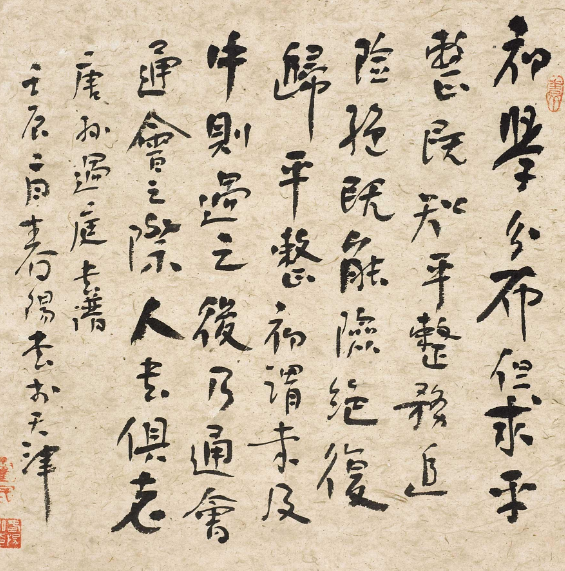 初學分布但求平
整既知平整務追
险絶既能險絶復
歸平整初謂未及
中則過之後乃通會
通會之際人書俱老
唐孫過庭書譜
壬辰二月陽書於天津